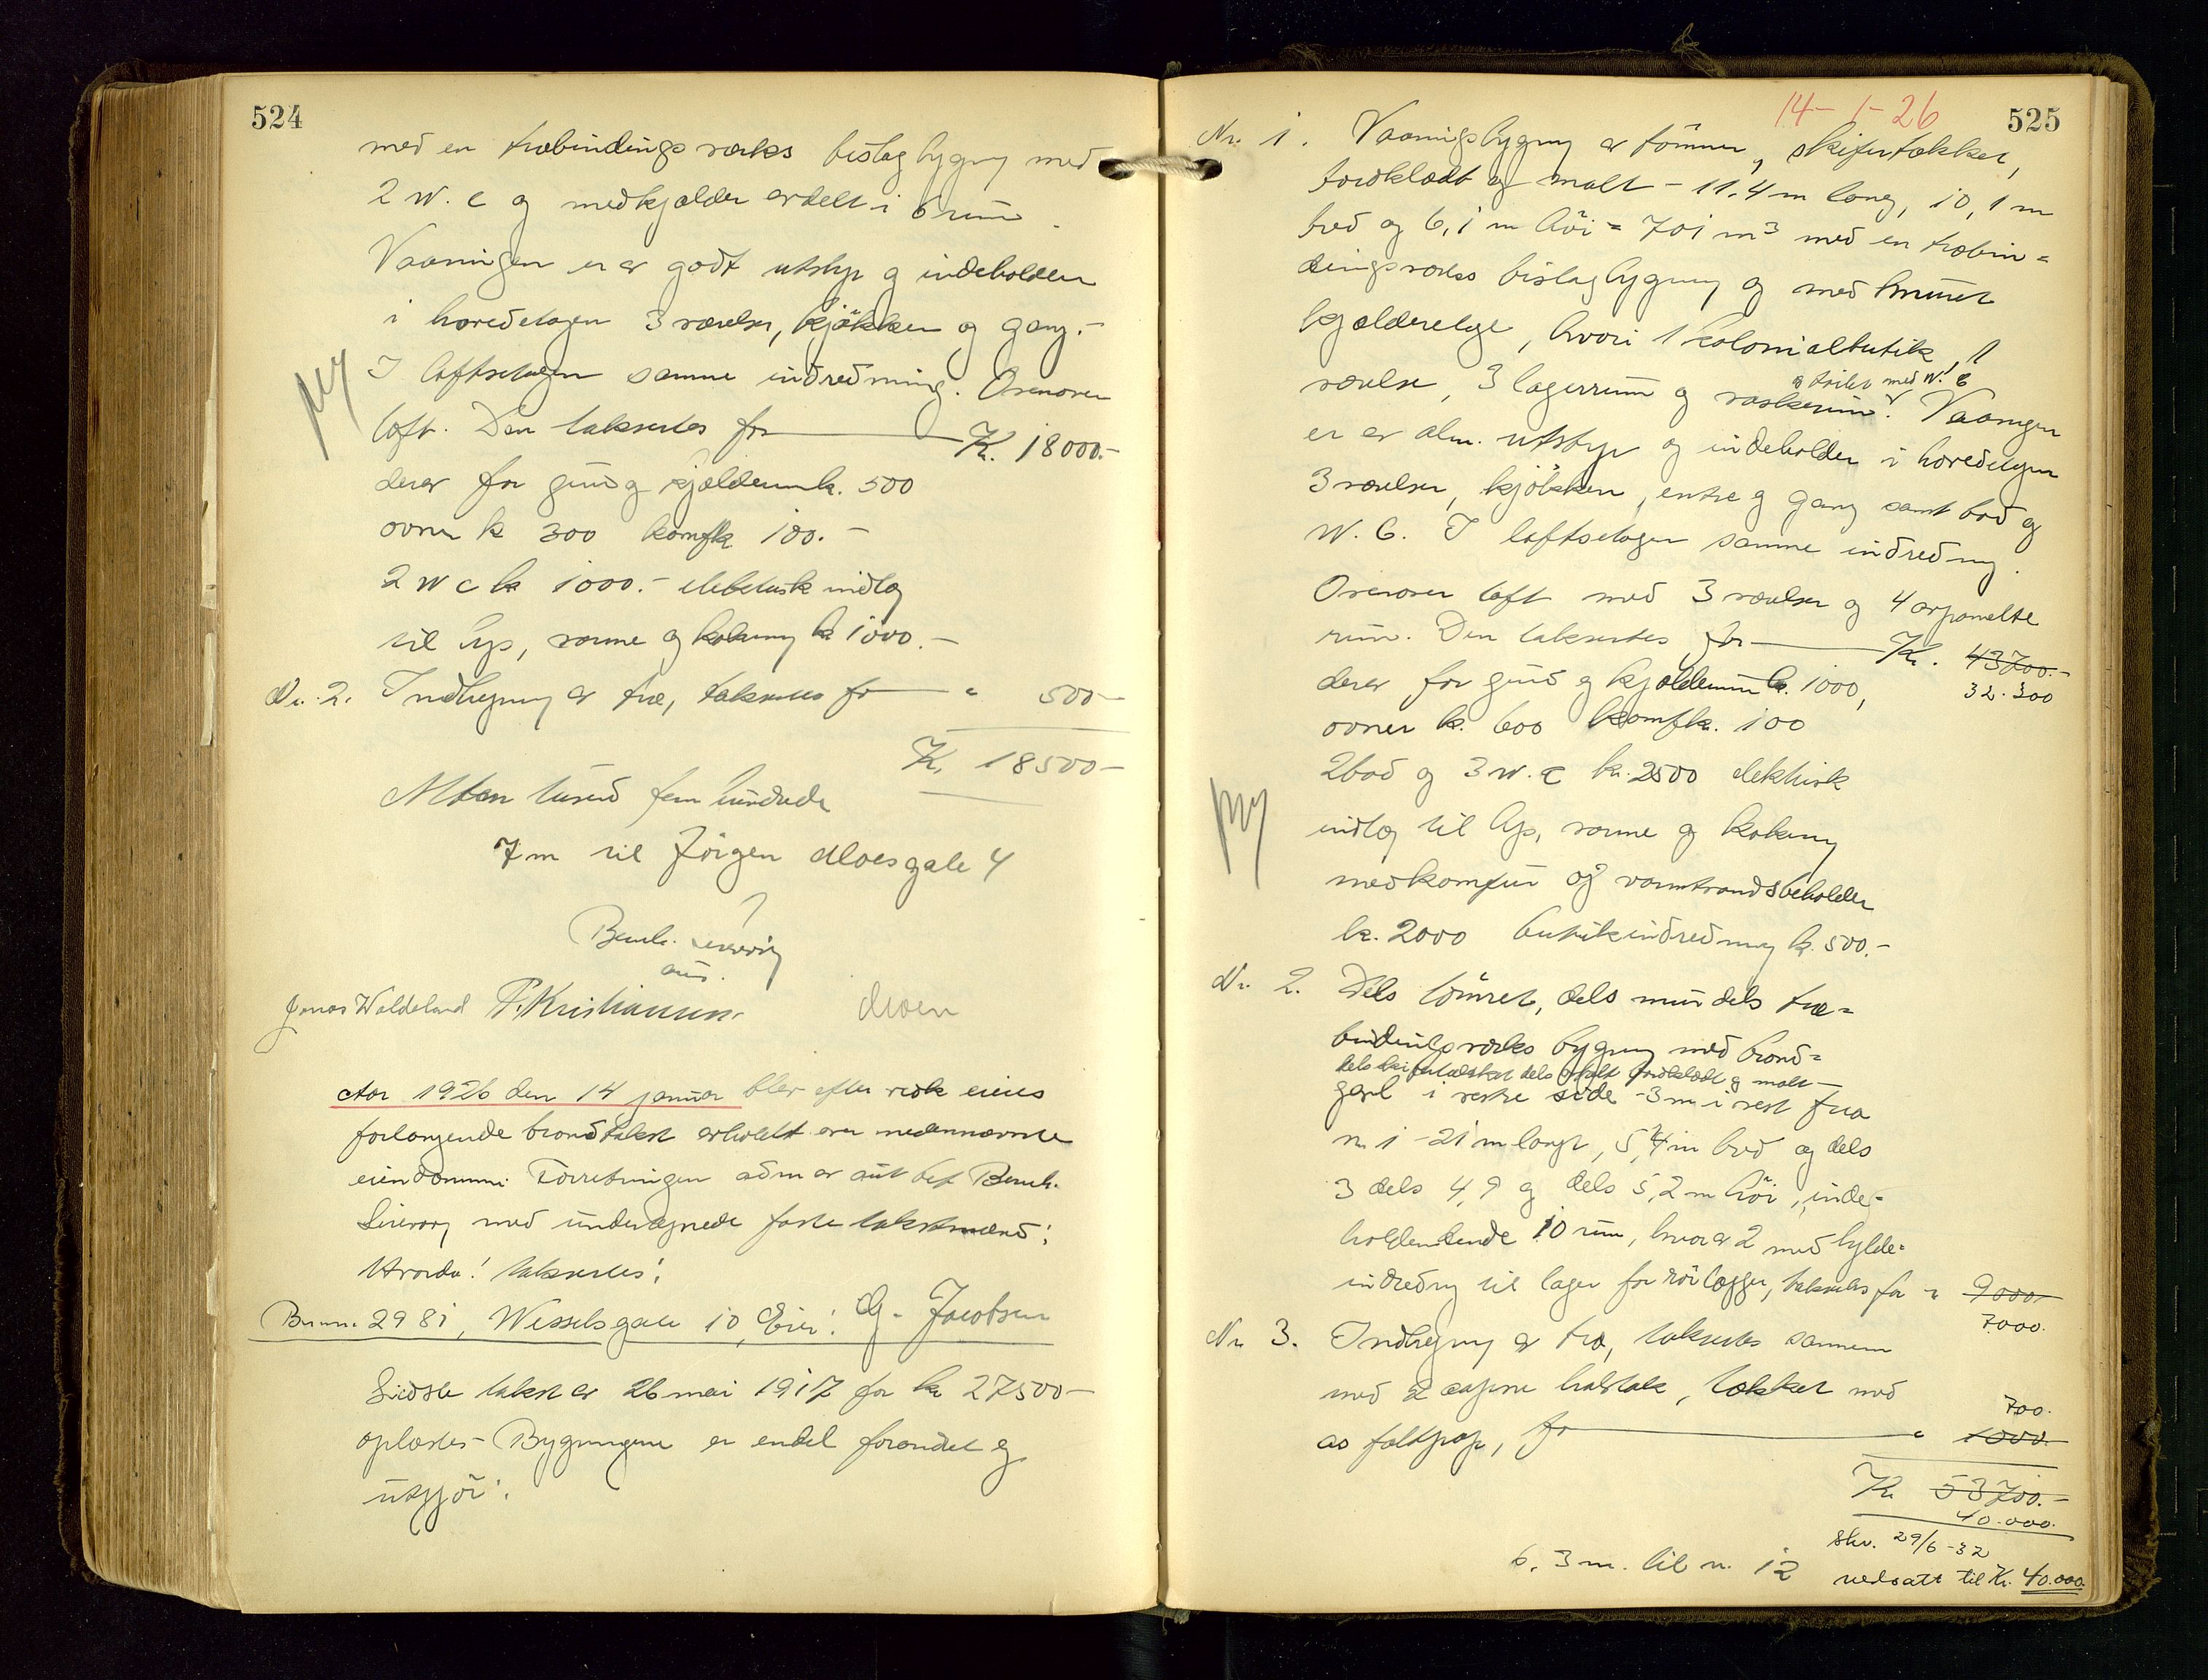 524
med en træbindingsværks bislag bygng med
2 W.C og med kjælder avdelt i 6 rum.
Vaaningen er av godt utstyr og indeholder
i hovedetagen 3 værelser, kjøkken og gang.-
I loftsetagen samme indredning. Ovenover
loft. Den takseres for — Kr. 18000.-
derav for grund og kjælderrum kr. 500
ovner kr 300 komf kr 100.-
2 W C kr 1000.- elektrisk indlæg
til lys, varme og kokning kr 1000.-
Nr. 2. Indhegning av træ, takseres for — " 500-
Kr. 18500-
Atten tusind fem hundrede
7 m til Jörgen Moesgate 4
Bernh.
Jonas Waldeland T. Kristiansen
Aar 1926 den 14 januar blev efter rekv eiers
forlangende brandtakst avholdt over nedennævnte
eiendommer. Forretningen adm av aut bef Bernh.
med undertegnede faste takstmænd:
Hvorda! takseres:
Br.nr. 2981, Wesselsgate 10, Eier: G. Jacobsen
Sidste takst av 26 mai 1917 for kr 27500-
oplæstes - Bygningene er endel forandret og
utgjör:
14-1-26
525
Nr. 1. Vaaningsbygng av tömmer, skifertækket,
bordklædt og malt - 11,4 m lang, 10,1 m
bred og 6,1 m höi = 701 m3 med en træbin=
dingsværks bislagbygning og med muret
kjælderetage, hvori 1 kolonialbutik, 1
og toilet med W.C
værelse, 3 lagerrum og vaskerum. Vaaningen
er av alm. utstyr og indeholder i hovedetagen
3 værelser, kjökken, entre og gang samt bad og
W.C. I loftsetagen samme indredning.
Ovenover loft med 3 værelser og 4 avpanelte
rum. Den takseres for — Kr. 43700.-
32.300
derav for grund og kjælderrum kr. 1000,
ovner kr. 600 komf kr. 100
2 bad og 3 W.C kr. 2500 elektrisk
indlæg til lys, varme og kokning
med komfur og varmtvandsbeholder
kr. 2000 butikindredning kr. 500.-
Nr. 2. Dels tömret, dels mur dels træ=
bindingsværks bygning med brand=
dels skifertækket dels asfalt bordklædt og malt -
gavl i vestre side - 3 m i vest fra
nr. 1 - 21 m langt, 5,4 m bred og dels
3 dels 4,9 og dels 5,2 m höi, inde=
holdendende 10 rum, hvorav 2 med hylde=
indredng til lager for rörlægger, takseres for " 9000
7000.
Nr. 3. Indhegning av træ, takseres sammen
med et aapne halvtak, tækket med
700.
as faltpap, for — " 1000.
Kr 53700.-
40.000.
skr. 29/6-32
6,3 m. til nr. 12
nedsatt til Kr. 40.000.